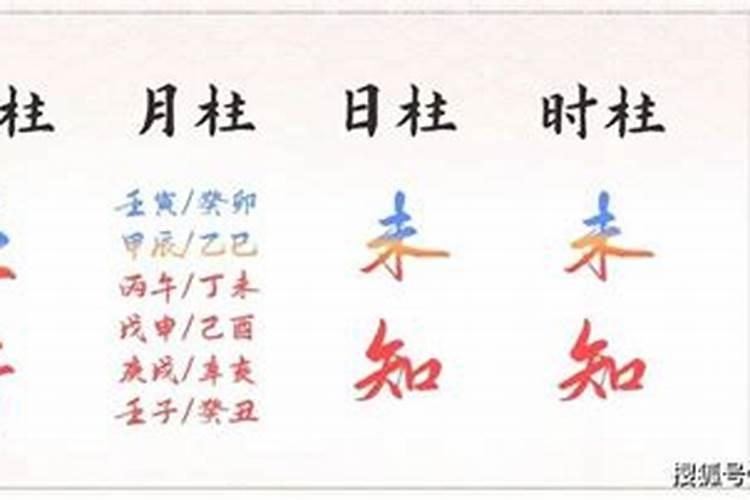 柱 月柱 日柱 时柱
壬寅/癸卯
甲辰/乙巳
丙午/丁未
戊申/己酉
庚戌/辛亥
壬子/癸丑
未 未
知 知
搜狐号